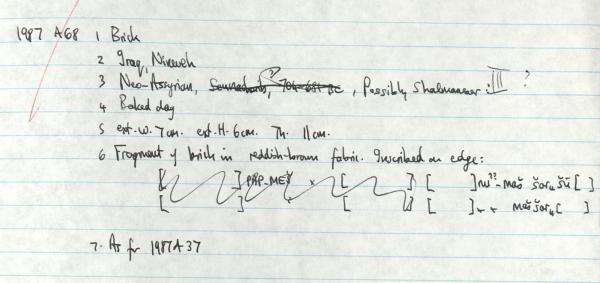 1987 A68 1 Brick
2 Iraq, Nineveh
3 Neo-Assyrian, Sennacherib, 704-681 BC, Possibly Shalmaneser III ?
4 Baked clay
5 ext. W. 7cm. ext. H. 6cm. Th. 11cm.
6 Fragment of brick in reddish-brown fabric. Inscribed on edge:
[ ] PAP-MEŠ x [ ] [ ] -maš šar₄ [ ]
[ ] [ ] [ ] x x maš šar₄ [ ]
7. As for 1987A37